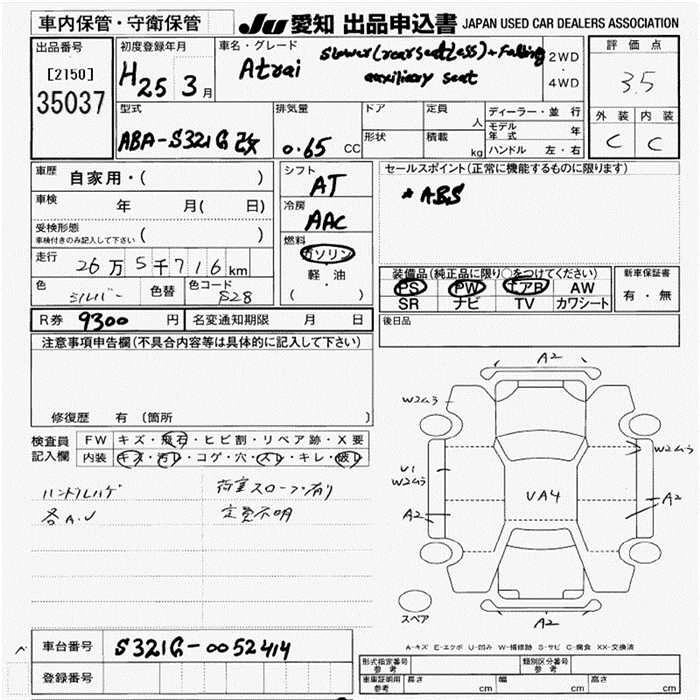 車内保管・守衛保管
JU 愛知 出品申込書 JAPAN USED CAR DEALERS ASSOCIATION
出品番号
[2150]
35037
初度登録年月
H25 3月
車名・グレード
Atrai
Slower (rear seat less) + Falling
auxiliary seat
2WD
・
4WD
評価点
3.5
外装 内装
C C
型式
ABA-S321G改
排気量
0.65 CC
ドア
形状
定員
人
積載
kg
ディーラー・並行
モデル年式 年
ハンドル 左・右
車歴 自家用・( )
車検 年 月( 日)
受検形態
車検付きのみ記入して下さい ( )
走行 26万5千716km
色 シルバー 色替 色コード S28
シフト
AT
冷房
AAC
燃料
ガソリン
軽・油
( )
セールスポイント(正常に機能するものに限ります)
* ABS
装備品(純正品に限り○をつけてください)
PS PW エアB AW
SR ナビ TV カワシート
新車保証書
有・無
R券 9300円 名変通知期限 月 日
後日品
注意事項申告欄(不具合内容等は具体的に記入して下さい)
修復歴 有 (箇所 )
検査員
記入欄
FW キズ・飛石・ヒビ割・リペア跡・X要
内装 キズ・汚レ・コゲ・穴・スレ・キレ・破レ
ハンドルハゲ
各A.U
荷室スロープ有り
定員不明
A2
W2ムラ
W2ムラ
U1
W2ムラ
A2
VA4
A2
A2
スペア
A-キズ E-エクボ U-凹み W-補修跡 S-サビ C-腐食 XX-交換済
車台番号 S321G-0052414
登録番号
形式指定番号
参考
類別区分番号
参考
車庫証明用
参考
長さ cm 幅 cm 高さ cm